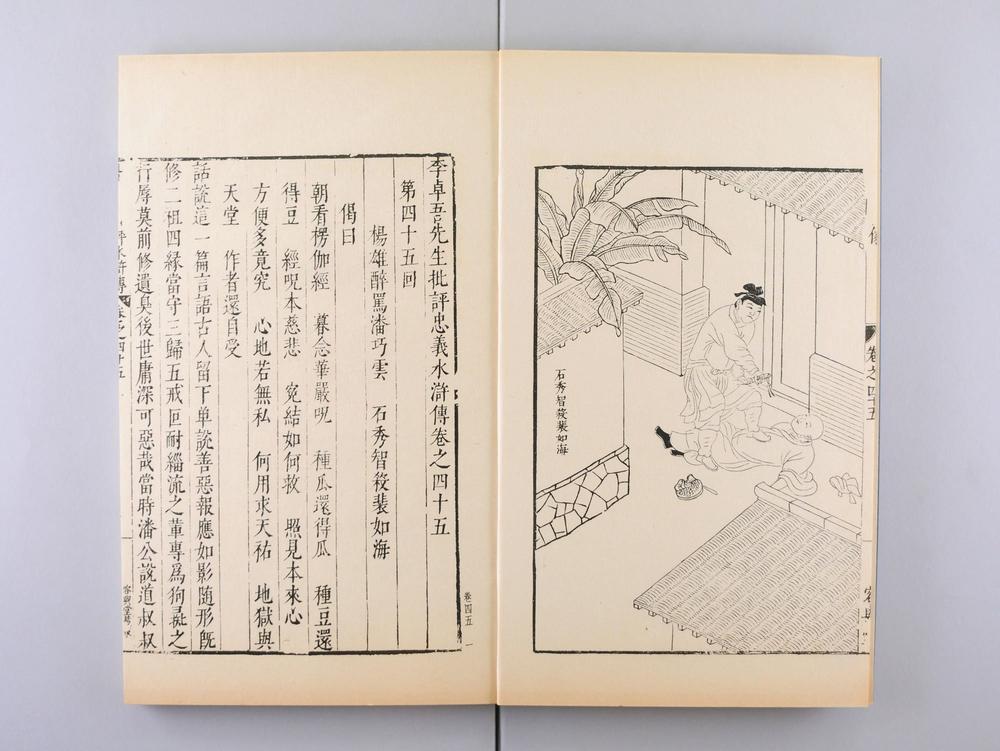 石秀智殺裴如海
卷之四十五
卷四五 一
李卓吾先生批評忠義水滸傳卷之四十五
第四十五回
楊雄醉罵潘巧雲 石秀智殺裴如海
偈曰
朝看楞伽經 暮念華嚴呪 種瓜還得瓜 種豆還
得豆 經呪本慈悲 寃結如何救 照見本來心
方便多竟究 心地若無私 何用求天祐 地獄與
天堂 作者還自受
話說這一篇言語古人留下单說善惡報應如影隨形旣
修二祖四緣當守三歸五戒叵耐緇流之軰專爲狗彘之
行辱莫前修遺臭後世庸深可惡哉當時潘公說道叔叔